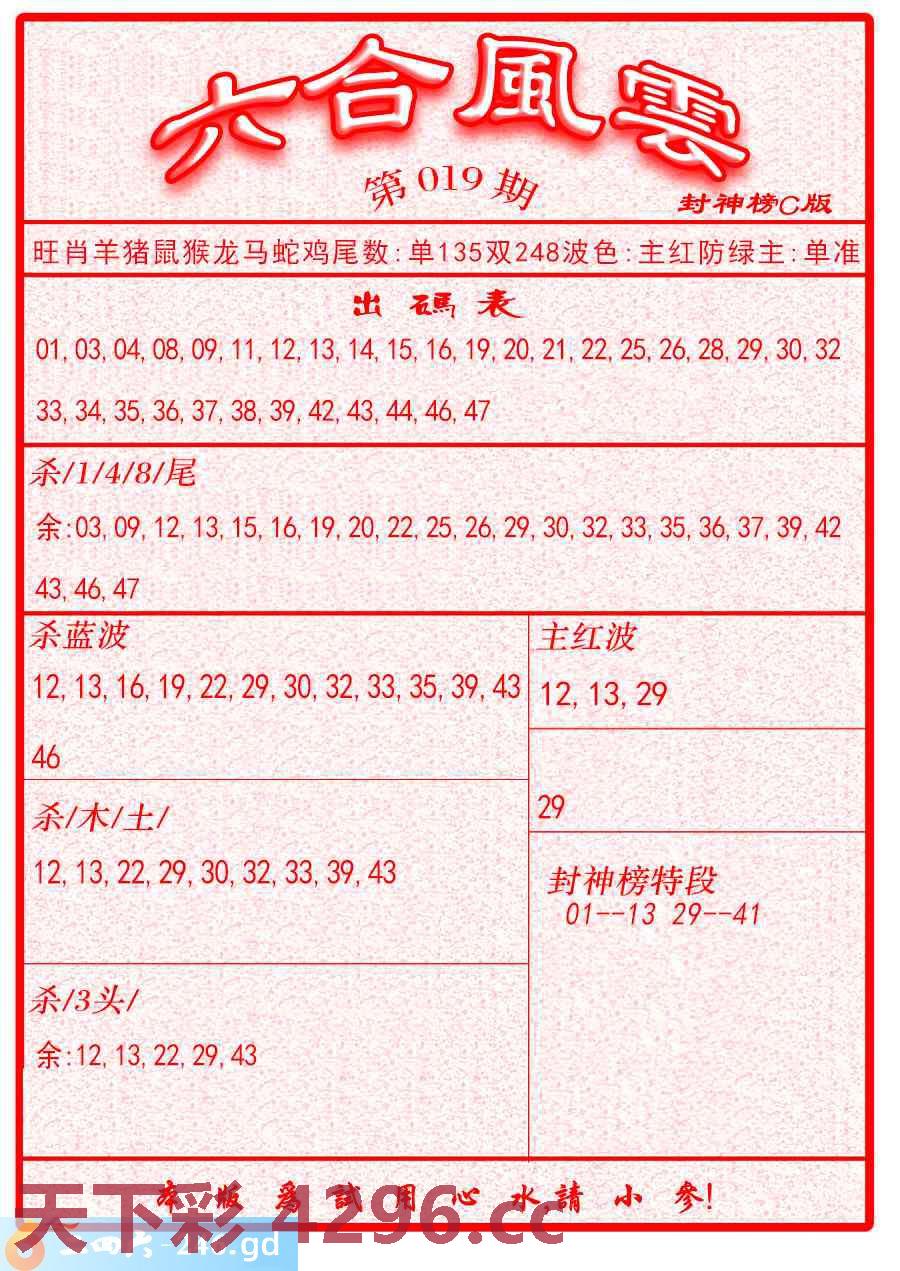 六合風雲
第 019 期
封神榜C版
旺肖羊猪鼠猴龙马蛇鸡尾数:单135双248波色:主红防绿主:单准
出碼表
01,03,04,08,09,11,12,13,14,15,16,19,20,21,22,25,26,28,29,30,32
33,34,35,36,37,38,39,42,43,44,46,47
杀/1/4/8/尾
余:03,09,12,13,15,16,19,20,22,25,26,29,30,32,33,35,36,37,39,42
43,46,47
杀蓝波
12,13,16,19,22,29,30,32,33,35,39,43
46
主红波
12,13,29
29
杀/木/土/
12,13,22,29,30,32,33,39,43
封神榜特段
01--13 29--41
杀/3头/
余:12,13,22,29,43
本版爲試用心水,請小參!
天下彩 4296.cc
二四六-246.gd